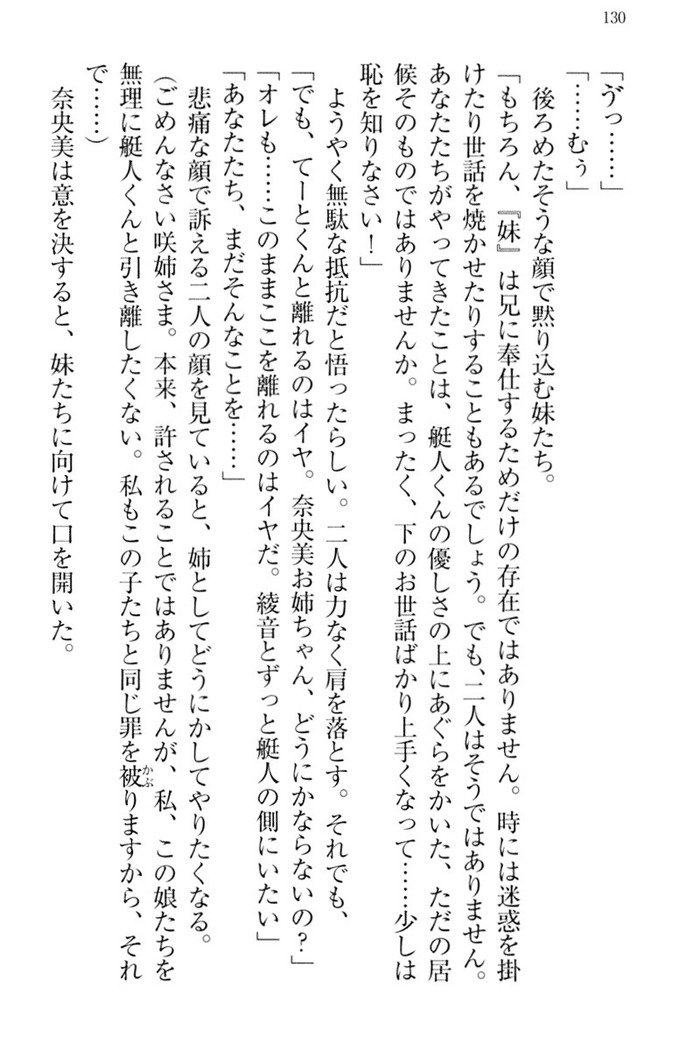 130
「ゔっ……」
「……むぅ」
　後ろめたそうな顔で黙り込む妹たち。
「もちろん、『妹』は兄に奉仕するためだけの存在ではありません。時には迷惑を掛
けたり世話を焼かせたりすることもあるでしょう。でも、二人はそうではありません。
あなたたちがやってきたことは、艇人くんの優しさの上にあぐらをかいた、ただの居
候そのものではありませんか。まったく、下のお世話ばかり上手くなって……少しは
恥を知りなさい！」
　ようやく無駄な抵抗だと悟ったらしい。二人は力なく肩を落とす。それでも、
「でも、てーとくんと離れるのはイヤ。奈央美お姉ちゃん、どうにかならないの？」
「オレも……このままここを離れるのはイヤだ。綾音とずっと艇人の側にいたい」
「あなたたち、まだそんなことを……」
　悲痛な顔で訴える二人の顔を見ていると、姉としてどうにかしてやりたくなる。
（ごめんなさい咲姉さま。本来、許されることではありませんが、私、この娘たちを
無理に艇人くんと引き離したくない。私もこの子たちと同じ罪を被りますから、それ
かぶ
で……）
　奈央美は意を決すると、妹たちに向けて口を開いた。